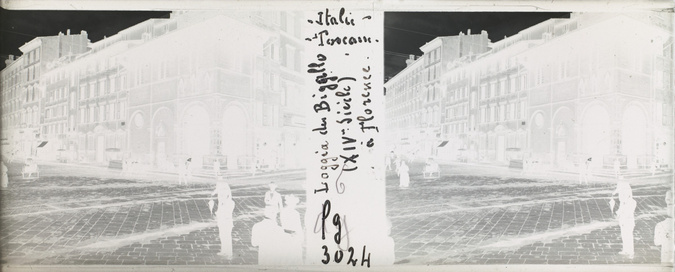 - Italie -
- Toscane.
Loggia du Bigallo
(XIVe Siècle)
à Florence.
Pg
3024